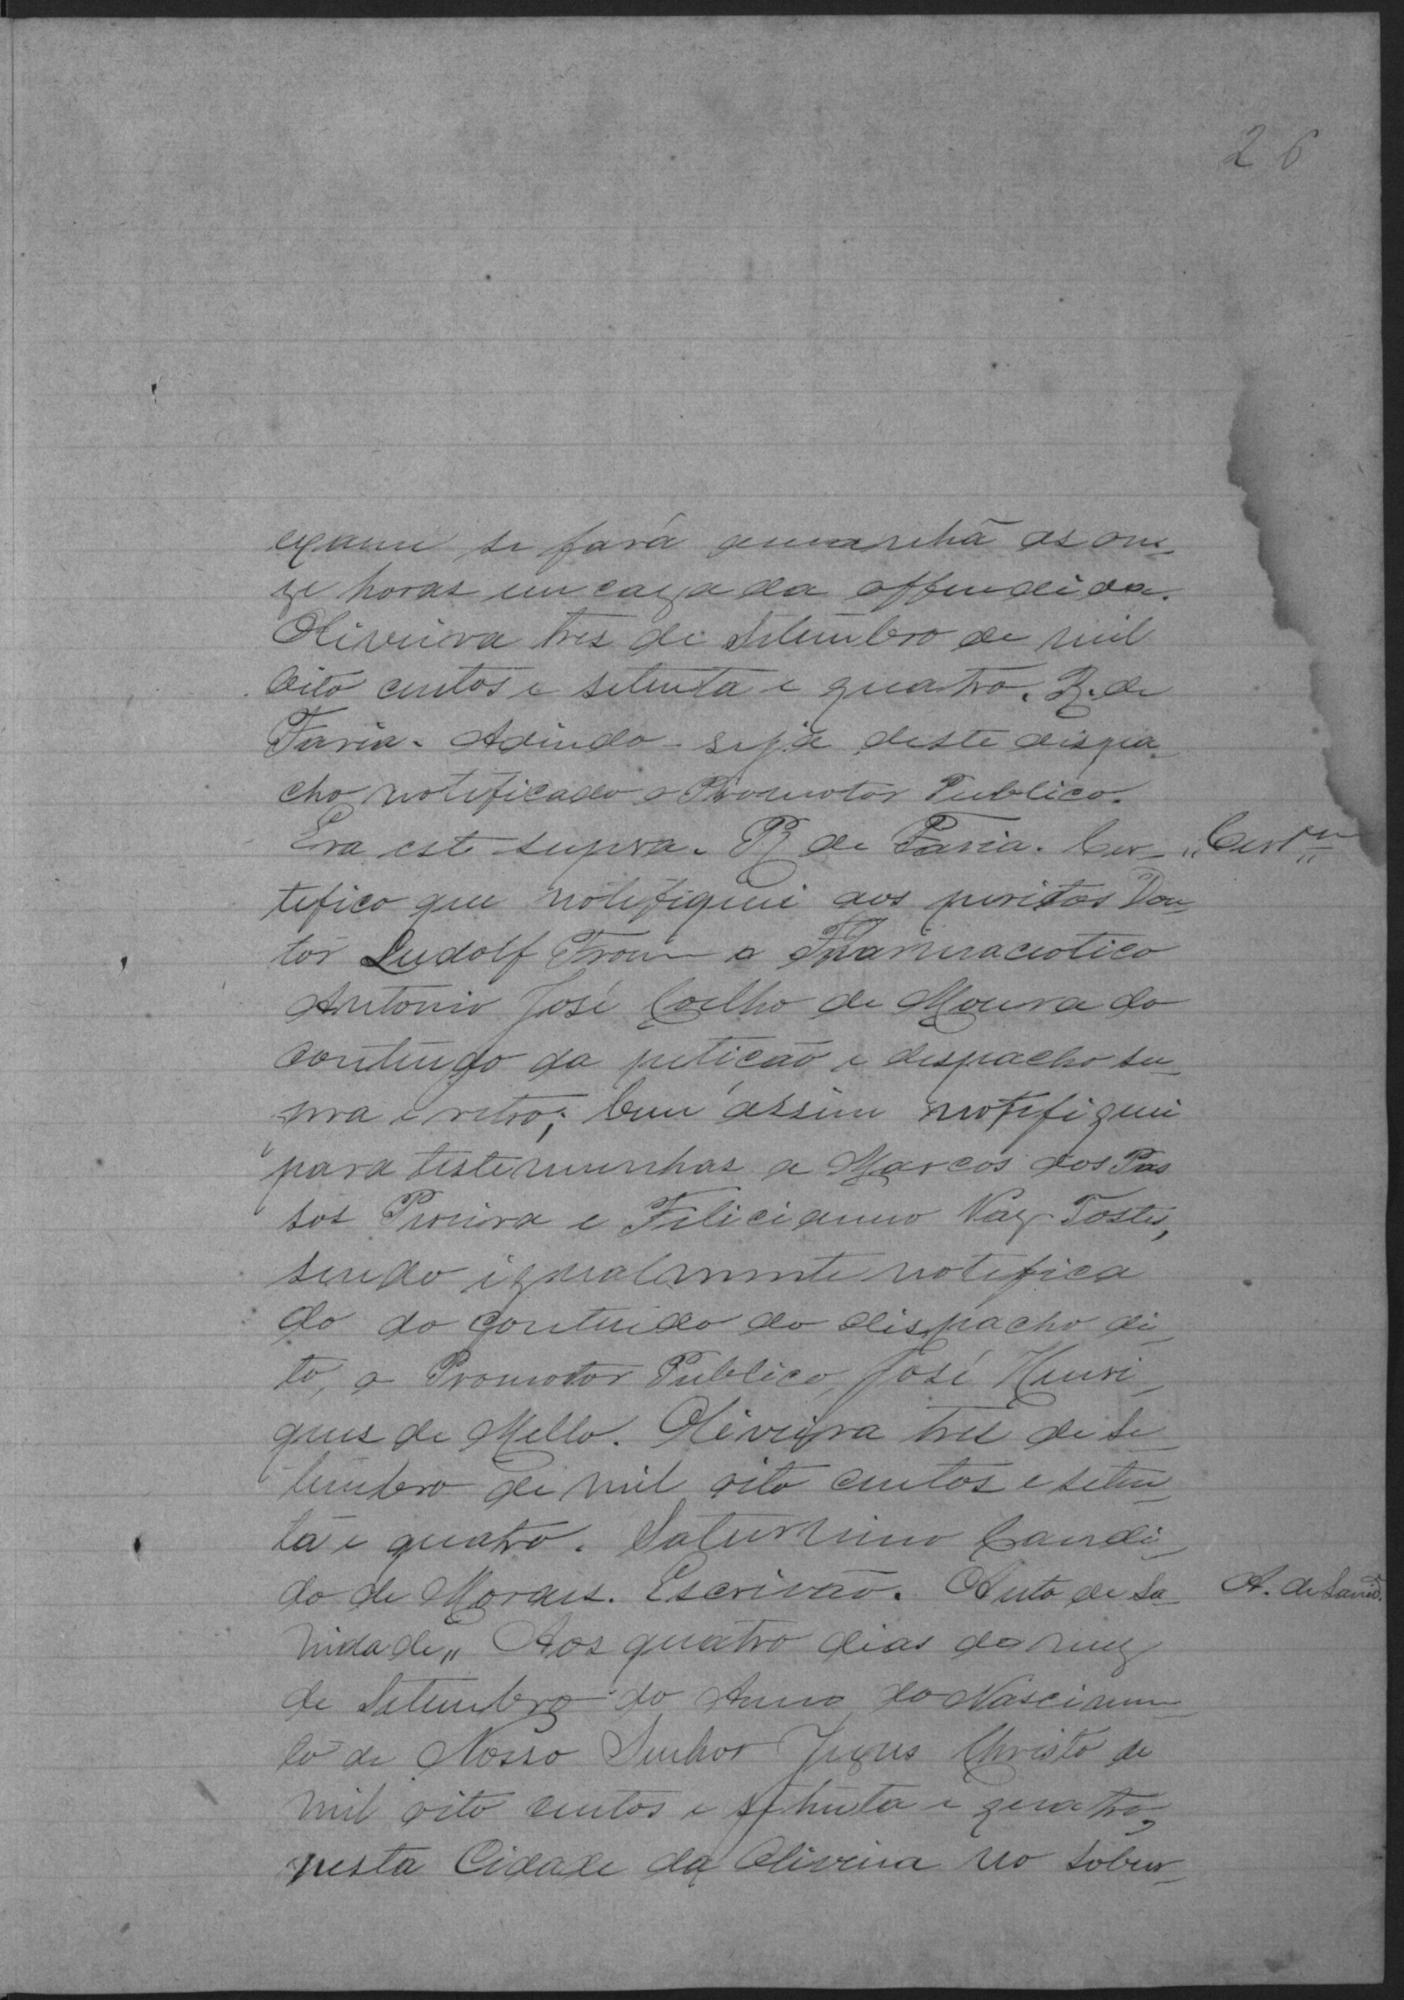 26
exame se fará amanhã as on-
ze horas em caza da offendida.
Oliveira tres de Setembro de mil
oito centos e setenta e quatro. R. de
Faria. Adindo - seja deste dispa-
cho notificado o Promotor Publico.
Era est supra. R de Faria. Cer- „Certm„
tefico que notifiquei aos peritos Dou-
tor Ludolf e Pharmaceotico
Antonio José Coelho de Moura do
contendo da petição e despacho su-
pra e retro; bem assim notifiquei
para testemunhas a Marcos dos Pas
sos e Felicianno Vaz Tostes,
sendo igualmente notifica
do do conteudo do dispacho di-
to, o Promotor Publico, José Henri-
ques de Mello. Oliveira tres de Se-
tembro de mil oito centos e seten-
ta e quatro. Saturnino Candi-
do de Moraes. Escrivão. Auto de Sa- A. de Sanid.
nidade„ Aos quatro dias do mez
de Setembro do Anno do Nascimen-
to de Nosso Senhor Jezus Christo de
mil oito centos e setenta e quatro,
nesta Cidade da Oliveira no sobra-